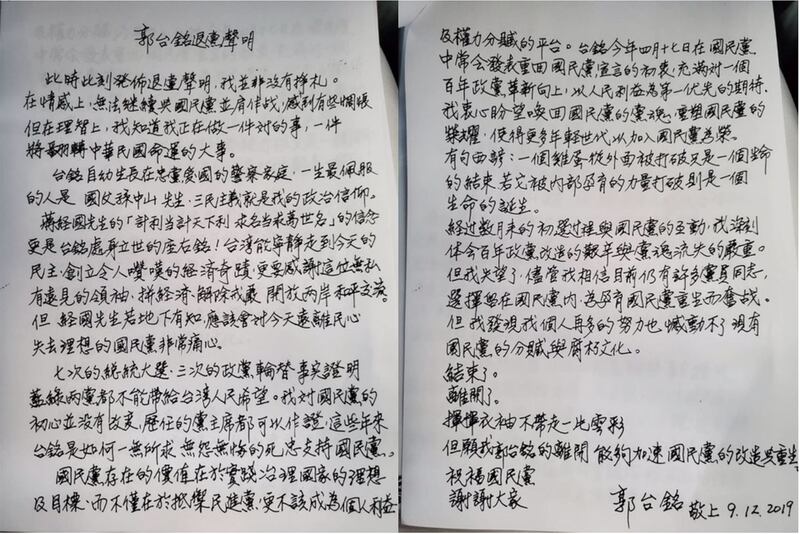 郭台銘退黨聲明
此時此刻發佈退黨聲明,我並非沒有掙扎。
在情感上,無法繼續與國民黨並肩作戰,感到有些惆悵
但在理智上,我知道我正在做一件對的事,一件
將翻轉中華民國命運的大事。
台銘自幼生長在忠黨愛國的警察家庭,一生最佩服
的人是 國父孫中山 先生,三民主義就是我的政治信仰。
蔣經國先生的「計利当計天下利 求名当求萬世名」的信念
更是台銘處身立世的座右銘!台灣能寧静走到今天的
民主,創立令人嘆的經濟奇蹟,更要感謝這位無私
有遠見的領袖,拼經濟、解除戒嚴 開放兩岸和平交流。
但 經國先生若地下有知,應該會对今天遠離民心
失去理想的國民黨非常痛心。
七次的總統大選,三次的政黨輪替事实證明
藍綠两黨都不能帶給台湾人民希望。我对國民黨的
初心並没有改变,歷任的黨主席都可以作證,這些年來
台銘是如何一無所求 無怨無悔的死忠支持國民黨。
國民黨存在的價值在於實踐治理國家的理想
及目標,而不僅在於抵禦民進黨,更不該成為個人利益
及權力分贓的平台。台銘今年四月十七日在國民黨
中常会發表重回國民黨宣言的初衷,充滿对一個
百年政黨革新向上,以人民利益為第一优先的期待。
我衷心盼望喚回國民黨的黨魂,重塑國民黨的
榮耀,使得更多年輕世代以加入國民黨為榮。
有句西諺:一個雞蛋從外面被打破只是一個生命
的結束 若它被内部孕育的力量打破則是一個
生命的誕生。
経过数月来的初選过程與國民黨的互動,我深刻
体会百年政黨改造的艱辛與黨魂流失的嚴重。
但我失望了,儘管我相信目前仍有許多黨員同志,
選擇留在國民黨内,為孕育國民黨重生而奮战。
但 我發現我個人再多的努力也 憾動不了 現有
國民黨的分贓與腐朽文化。
結束了。
離開了。
揮揮衣袖 不帶走一片雲彩
但願我郭台銘的離開 能夠加速國民黨的改造與重生
祝福國民黨
謝謝大家
郭台銘 敬上 9.12.2019